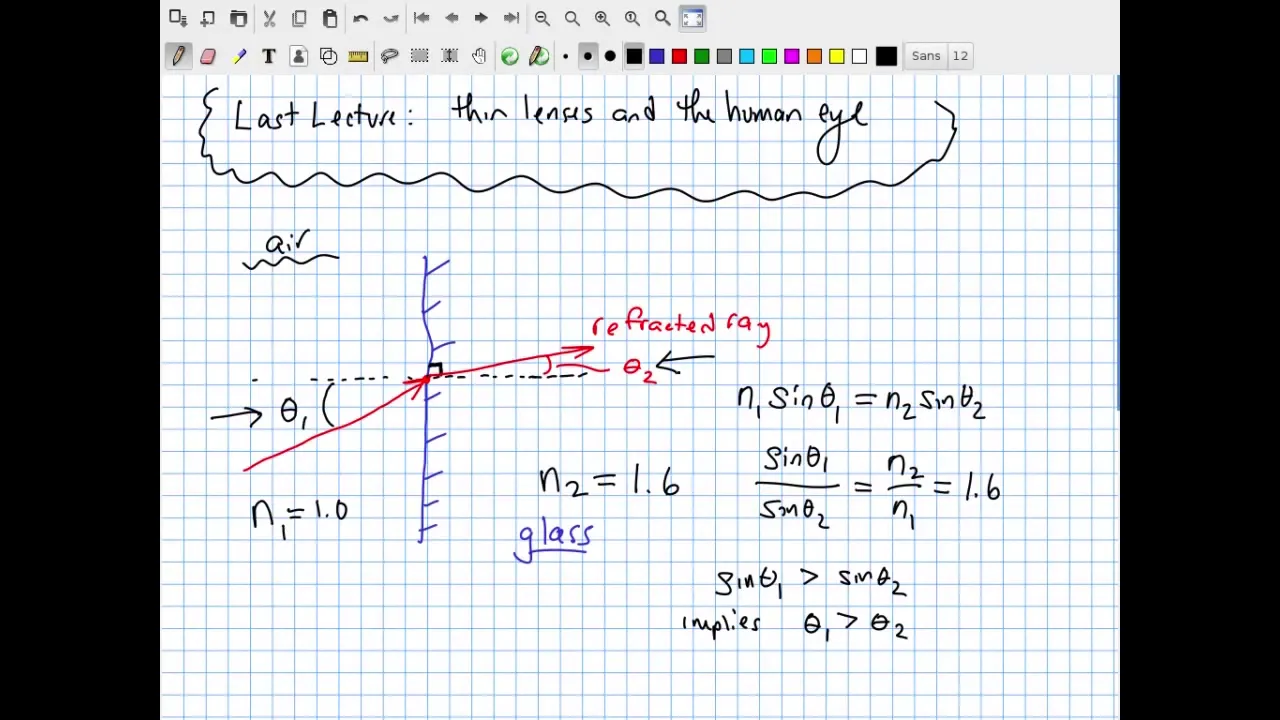 Sans 12
Last Lecture: thin lenses and the human eye
air
refracted ray
θ₂
θ₁
n₁ sinθ₁ = n₂ sinθ₂
sinθ₁ / sinθ₂ = n₂ / n₁ = 1.6
n₂ = 1.6
n₁ = 1.0
glass
sinθ₁ > sinθ₂
implies θ₁ > θ₂